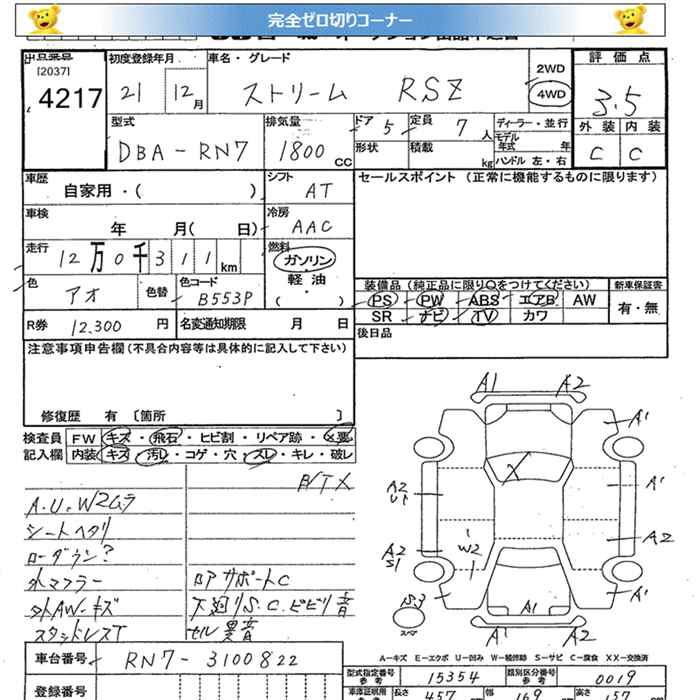 完全ゼロ切りコーナー
出品番号 初度登録年月 車名・グレード 2WD 評価点
[2037]
4217 21 12月 ストリーム RSZ 4WD 3.5
型式 排気量 ドア 5 定員 7人 ディーラー・並行 外装 内装
DBA-RN7 1800cc 形状 積載 kg モデル年式 年 C C
ハンドル 左・右
車歴 シフト セールスポイント (正常に機能するものに限ります)
自家用・( ) AT
車検 冷房
年 月( 日) AAC
走行 燃料
12万0千311km ガソリン
色 色替 色コード 軽油
アオ B553P ( )
装備品 (純正品に限り○をつけてください) 新車保証書
PS PW ABS エアB AW 有・無
SR ナビ TV カワ
R券 12,300円 名変通知期限 月 日 後日品
注意事項申告欄(不具合内容等は具体的に記入して下さい)
修復歴 有 [箇所 ]
検査員 FW キズ・飛石・ヒビ割・リペア跡・×要
記入欄 内装 キズ・汚レ・コゲ・穴・スレ・キレ・破レ
A1 A2
A1
A1
A2 U1
A2
A2 S1
W2
A1
A1
A1 A2
X
スペア
A.U.W2ムラ
シートヘタリ
ローダウン?
外マフラー
外AW-キズ
スタッドレスT
コアサポートC
下廻りS.C.ビビリ音
セル異音
A-キズ E-エクボ U-凹み W-補修跡 S-サビ C-腐食 XX-交換済
車台番号 RN7-3100822
型式指定番号 参考 15354 類別区分番号 参考 0019
登録番号 車庫証明用 参考 長さ 457 幅 169 高さ 159